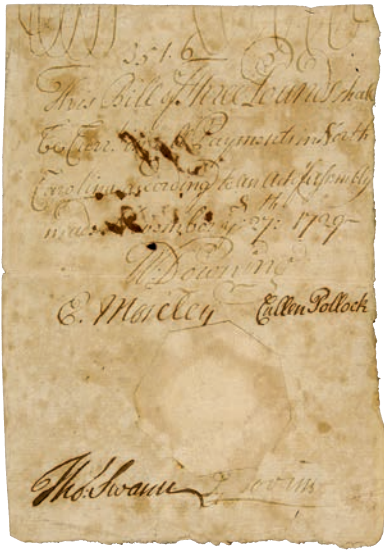 3516
This Bill of Three Pounds shall
be Curr in all Payments in North
Carolina according to an Act of Assembly
made November ye 27th: 1729
W Downing
E. Moseley Cullen Pollock
Tho: Swann